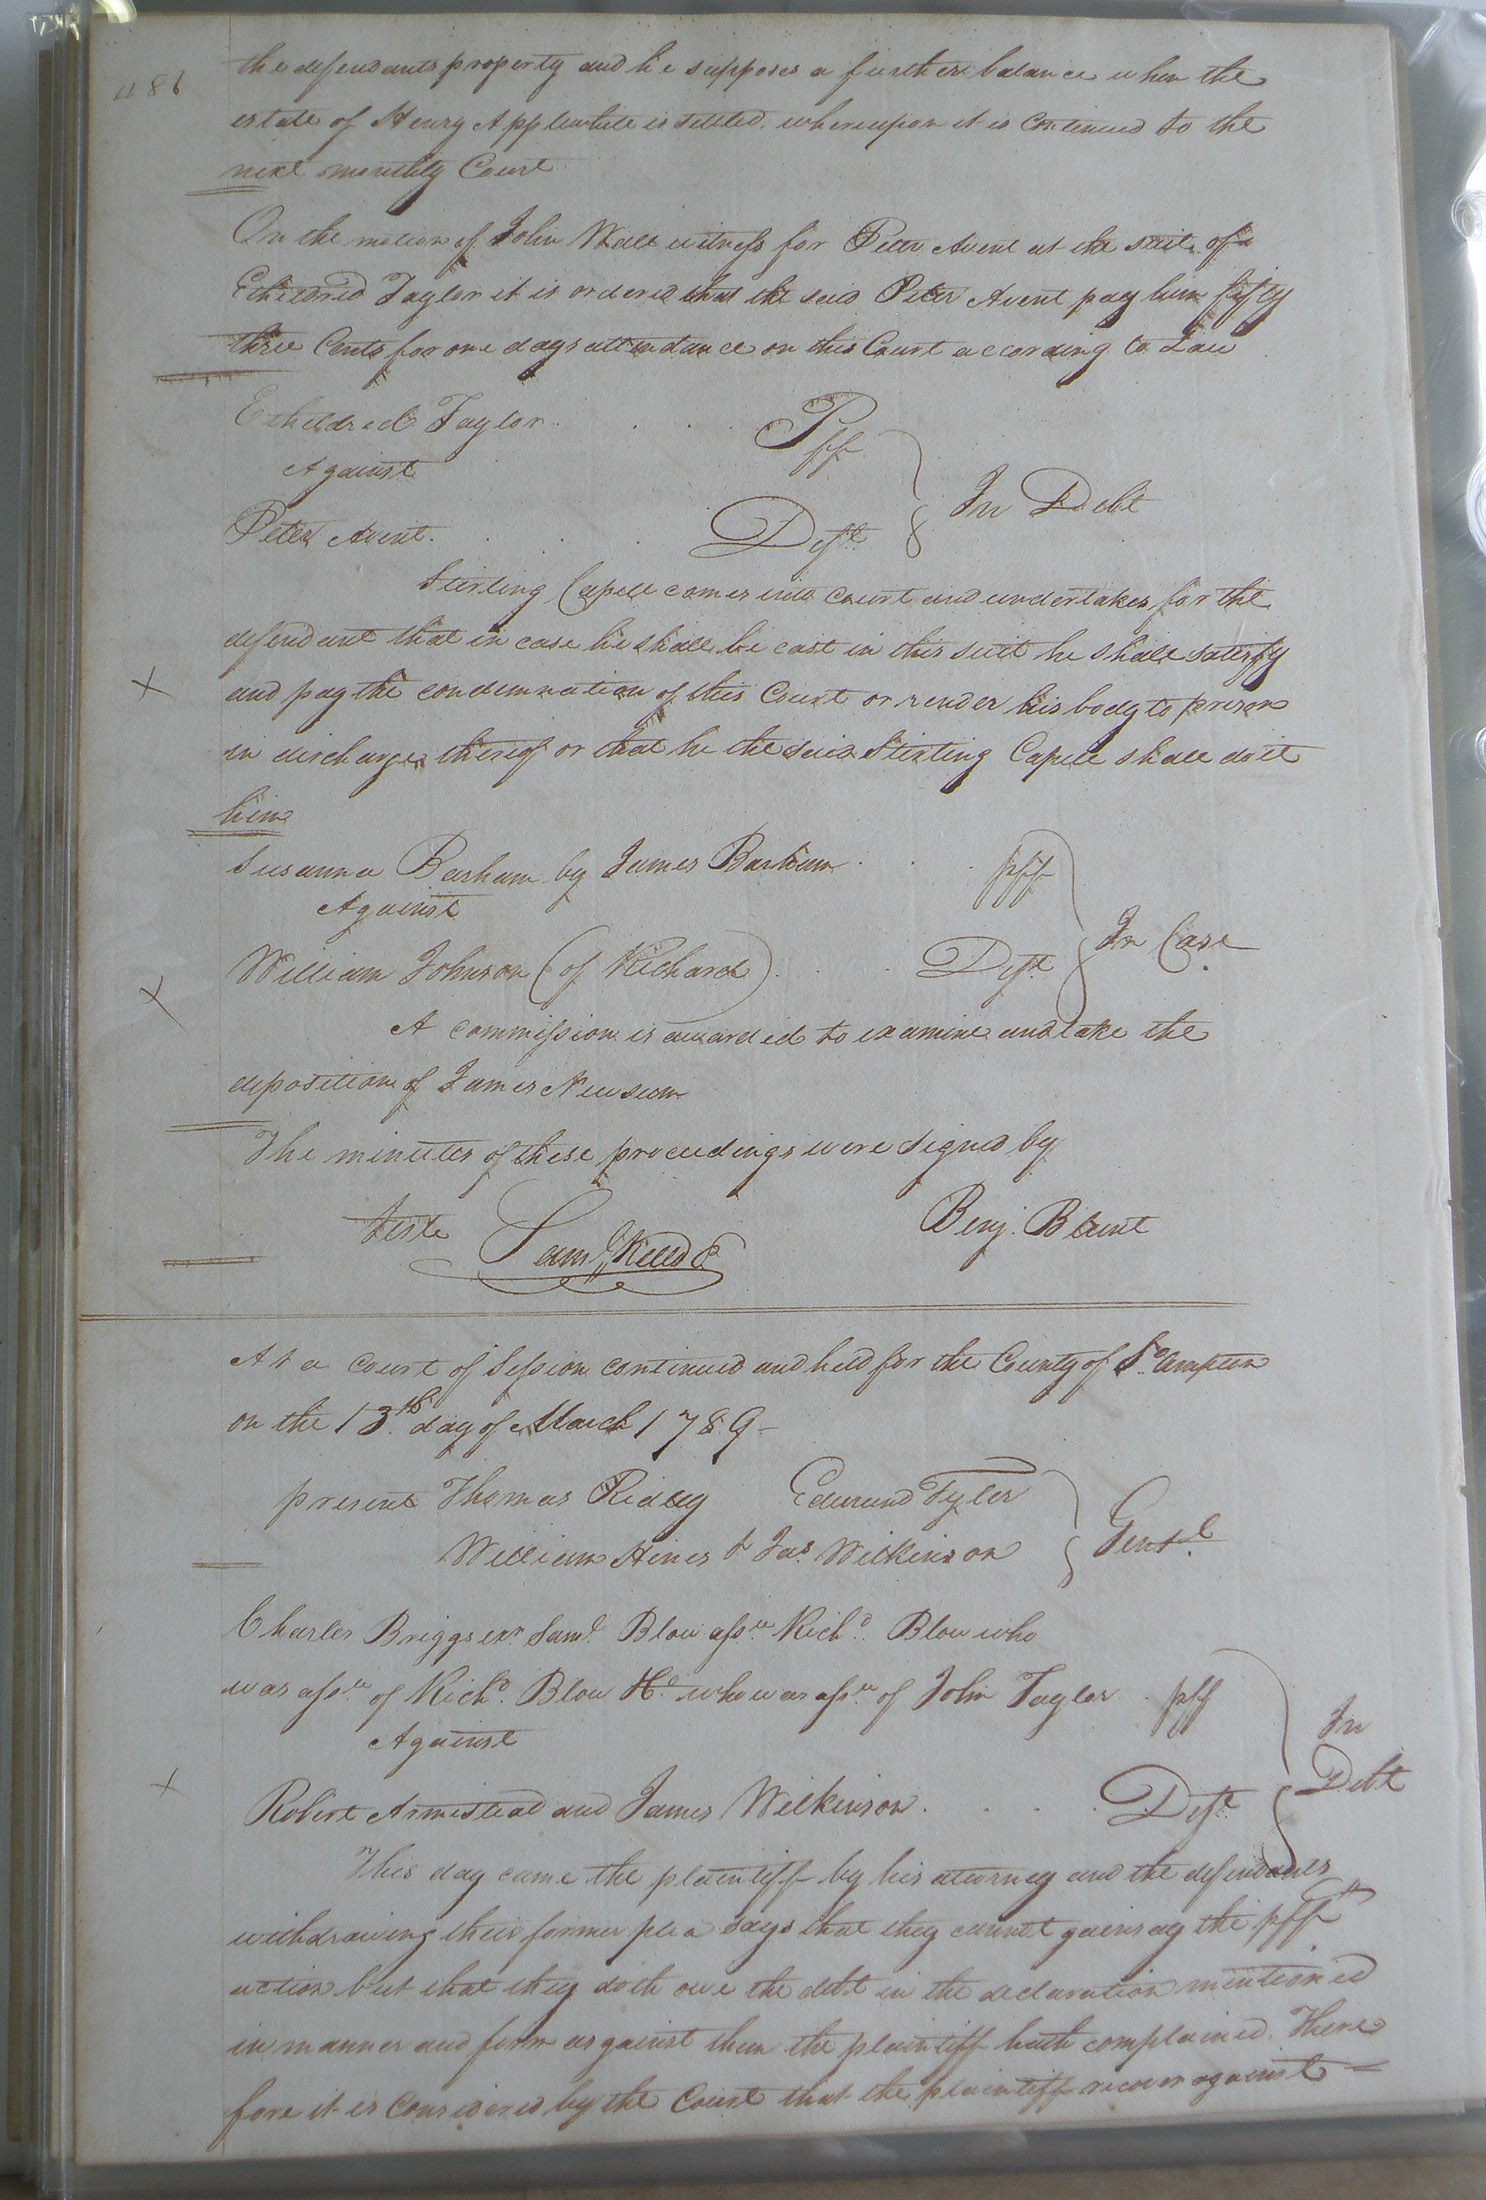 486
the defendants property and he supposes a further balance when the
estate of Henry Applewhite is settled. whereupon it is Continued to the
next monthly Court
On the motion of John Wall witness for Peter Avent at the suit of
Etheldred Taylor it is ordered that the said Peter Avent pay him fifty
three Cents for one days attendance on this Court according to Law
Etheldred Taylor . . . Pff
Against
In Debt
Peter Avent . . . . Deft
Stirling Capell comes into Court and undertakes for the
defendant that in case he shall be cast in this suit he shall satisfy
and pay the condemnation of this Court or render his body to prison
in discharge thereof or that he the said Stirling Capell shall do it
him
Susanna Barham by James Barham . . . pff
Against
In Case
William Johnson (of Richard) . . Deft
A commission is awarded to examine and take the
deposition of James Newsum
The minutes of these proceedings were signed by
Teste Saml Kello C Benj. Blunt
At a Court of Session continued and held for the County of So.ampton
on the 13th day of March 1789-
present Thomas Ridley Edmund Tyler
William Hines & Jas. Wilkinson Gentl
Charles Briggs exr Saml. Blow asse Richd. Blow who
was asse of Richd. Blow who was asse of John Taylor . pff
Against
In
Debt
Robert Armistead and James Wilkinson . . . . Deft
This day came the plaintiff by his attorney and the defendants
withdrawing their former plea says that they cannot gainsay the pffs
action but that they doth owe the debt in the declaration mentioned
in manner and form as against them the plaintiff hath complained. There
fore it is Considered by the Court that the plaintiff recover against =